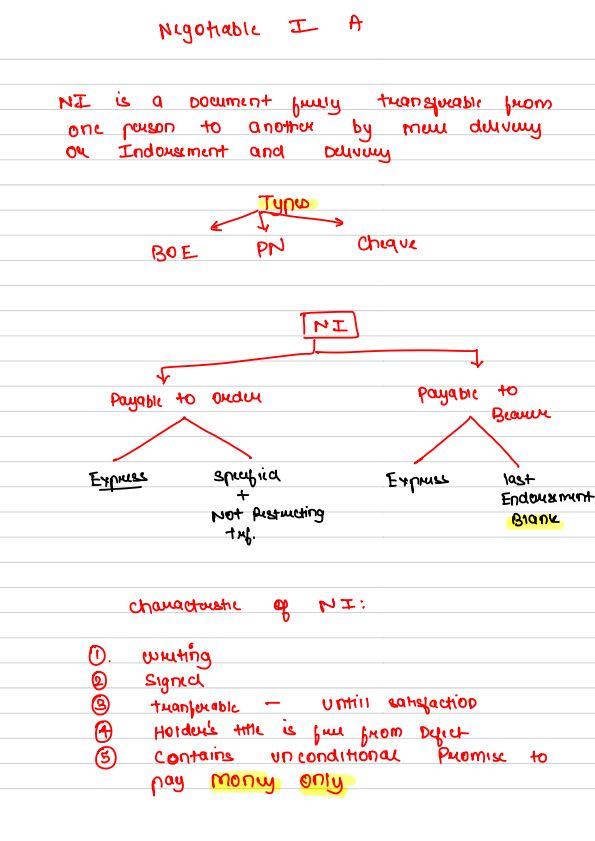 Negotiable I A
NI is a Document freely transferable from
one person to another by mere delivery
or Indorsement and Delivery
Types
BOE PN Cheque
NI
Payable to order
Payable to
Bearer
Express
specified
+
Not Restricting
trf.
Express
last
Endorsement
Blank
Characterstic of NI:
①. writing
② Signed
③ tranferable – untill satisfaction
④ Holder's title is free from Defect
⑤ Contains unconditional Promise to
pay Money only